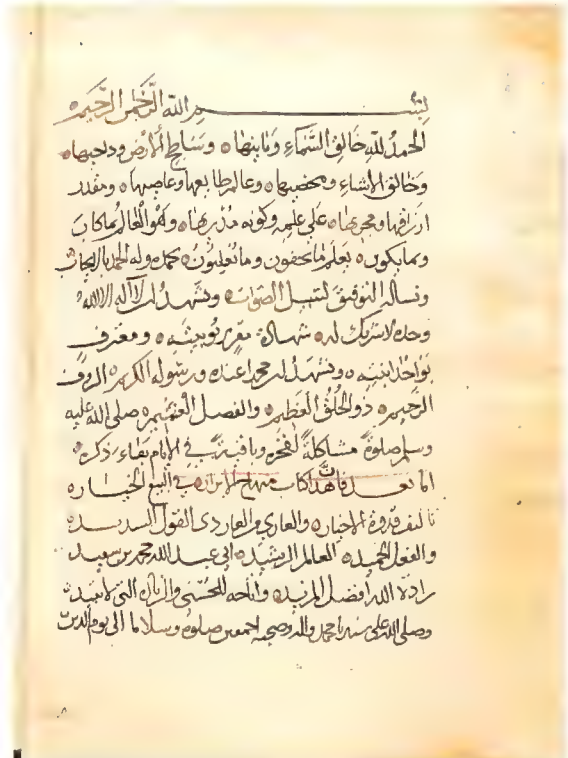 بسم الله الرحمن الرحيم
الحمد لله خالق السماء وبانيها ه وساطح الارض وداحيها ه
وخالق الاشياء ومحصيها ه وعالم طايعها وعاصيها ه ومقدر
ارزاقها ومجريها ه على علمه وكونه مدبرها ه وهو العالم بما كان
وبما يكون ه يعلم ما تخفون وما تعلنون ه نحمده وله الحمد بالايجاب
ونساله التوفيق لسبيل الصواب ه ونشهد ان لا اله الا الله
وحده لا شريك له ه شهادة مقر بربوبيته ه ومعترف
بواحدانيته ه ونشهد ان محمدا عبده ورسوله الكريم ه الروف
الرحيم ه ذو الخلق العظيم ه والفضل العميم ه صلى الله عليه
وسلم صلوة مشاكلة لفخره وباقية في الانام بقاء ذكره ه
اما بعد فان هذا كتاب منهاج في البيع الخيار ه
تاليف قدوة الاخيار ه القول السديد ه
والفعل الحميد ه العالم الرشيد ه ابي عبد الله محمد بن سعيد
زاده الله افضل المزيد ه للحسنى والزيادة التي لا تبيد ه
وصلى الله على سيدنا محمد واله وصحبه اجمعين صلوة وسلاما الى يوم الدين